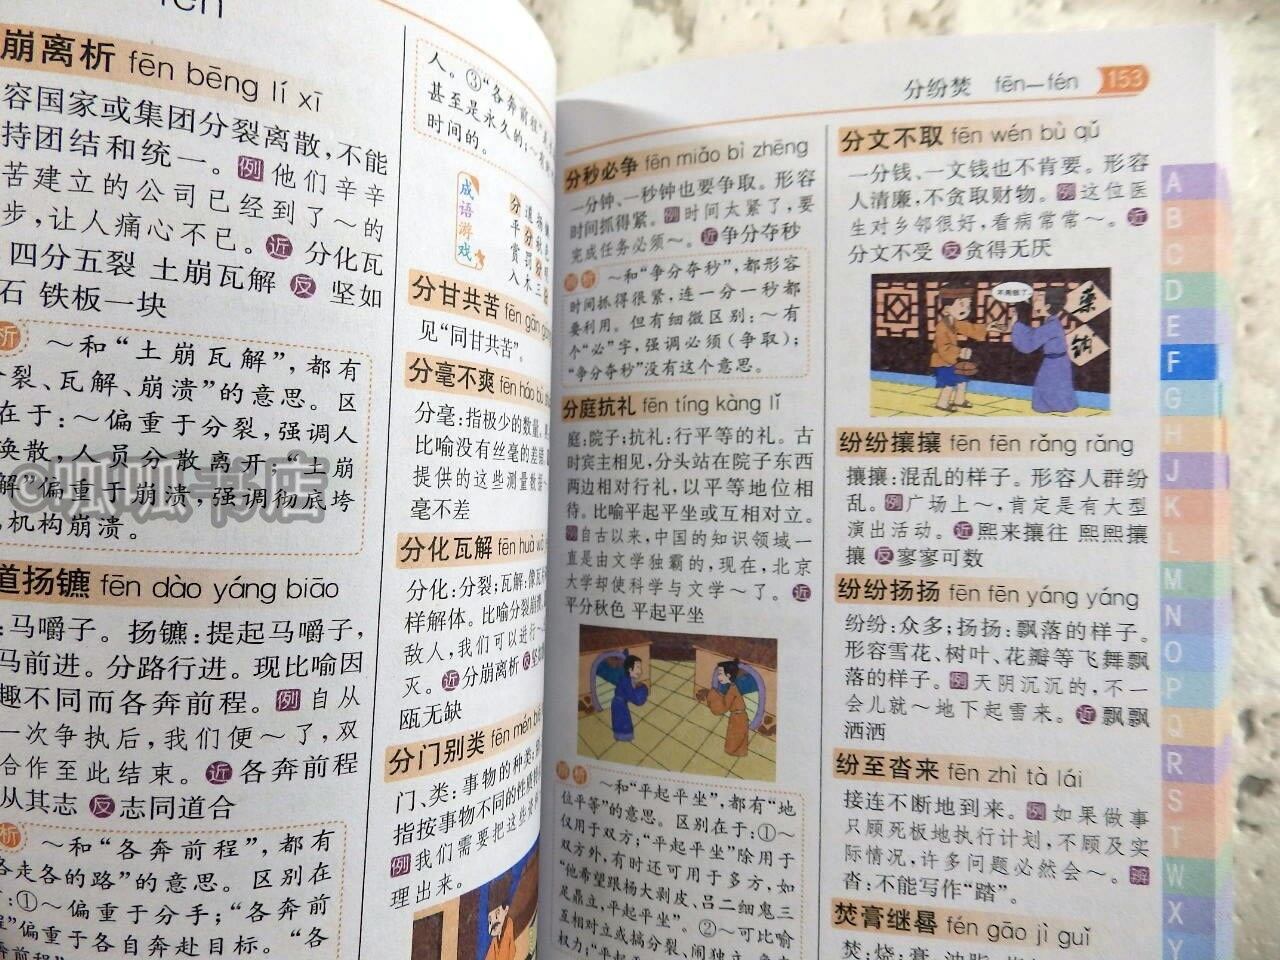 fēn
崩离析 fēn bēng lí xī
容国家或集团分裂离散,不能
持团结和统一。例他们辛辛
苦建立的公司已经到了～的
步,让人痛心不已。近 分化瓦
四分五裂 土崩瓦解 反 坚如
石 铁板一块
析 ～和“土崩瓦解”,都有
分裂、瓦解、崩溃”的意思。区
在于:～偏重于分裂,强调人
涣散,人员分散离开;“土崩
解”偏重于崩溃,强调彻底垮
,机构崩溃。
©呱呱书店
道扬镳 fēn dào yáng biāo
:马嚼子。扬镳:提起马嚼子,
马前进。分路行进。现比喻因
趣不同而各奔前程。例 自从
一次争执后,我们便～了,双
合作至此结束。近 各奔前程
从其志 反 志同道合
析 ～和“各奔前程”,都有
各走各的路”的意思。区别在
:①～偏重于分手;“各奔前
程”偏重于各自奔赴目标。“各
人。③“各奔前程”
甚至是永久的;～
时间的。
成语游戏
分道扬
平分秋色
赏罚分
入木三
分甘共苦 fēn gān
见“同甘共苦”。
分毫不爽 fēn háo bù
分毫:指极少的数量。
比喻没有丝毫的差错。
提供的这些测量数据～
毫不差
分化瓦解 fēn huà wǎ
分化:分裂;瓦解:像瓦
样解体。比喻分裂崩溃
敌人,我们可以进行～
灭。近 分崩离析 反 坚如
瓯无缺
分门别类 fēn mén bié
门、类:事物的种类;
指按事物不同的性质特
例我们需要把这些
理出来。
分纷焚 fēn—fén 153
分秒必争 fēn miǎo bì zhēng
一分钟、一秒钟也要争取。形容
时间抓得紧。例时间太紧了,要
完成任务必须～。近 争分夺秒
辨析 ～和“争分夺秒”,都形容
时间抓得很紧,连一分一秒都
要利用。但有细微区别:～有
个“必”字,强调必须(争取);
“争分夺秒”没有这个意思。
分庭抗礼 fēn tíng kàng lǐ
庭:院子;抗礼:行平等的礼。古
时宾主相见,分头站在院子东西
两边相对行礼,以平等地位相
待。比喻平起平坐或互相对立。
例自古以来,中国的知识领域一
直是由文学独霸的,现在,北京
大学却使科学与文学～了。近
平分秋色 平起平坐
辨析 ～和“平起平坐”,都有“地
位平等”的意思。区别在于:①～
仅用于双方;“平起平坐”除用于
双方外,有时还可用于多方,如
“他希望跟杨大剥皮、吕二细鬼三
足鼎立,平起平坐”。②～可比喻
互相对立或搞分裂、闹独立、争夺
权力;“平起
分文不取 fēn wén bù qǔ
一分钱、一文钱也不肯要。形容
人清廉,不贪取财物。例这位医
生对乡邻很好,看病常常～。近
分文不受 反 贪得无厌
不用钱了。
药
铺
纷纷攘攘 fēn fēn rǎng rǎng
攘攘:混乱的样子。形容人群纷
乱。例广场上～,肯定是有大型
演出活动。近 熙来攘往 熙熙攘
攘 反 寥寥可数
纷纷扬扬 fēn fēn yáng yáng
纷纷:众多;扬扬:飘落的样子。
形容雪花、树叶、花瓣等飞舞飘
落的样子。例天阴沉沉的,不一
会儿就～地下起雪来。近 飘飘
洒洒
纷至沓来 fēn zhì tà lái
接连不断地到来。例如果做事
只顾死板地执行计划,不顾及实
际情况,许多问题必然会～。误
沓:不能写作“踏”。
焚膏继晷 fén gāo jì guǐ
焚:烧;膏:油脂,
A
B
C
D
E
F
G
H
J
K
L
M
N
O
P
Q
R
S
T
W
X
Y